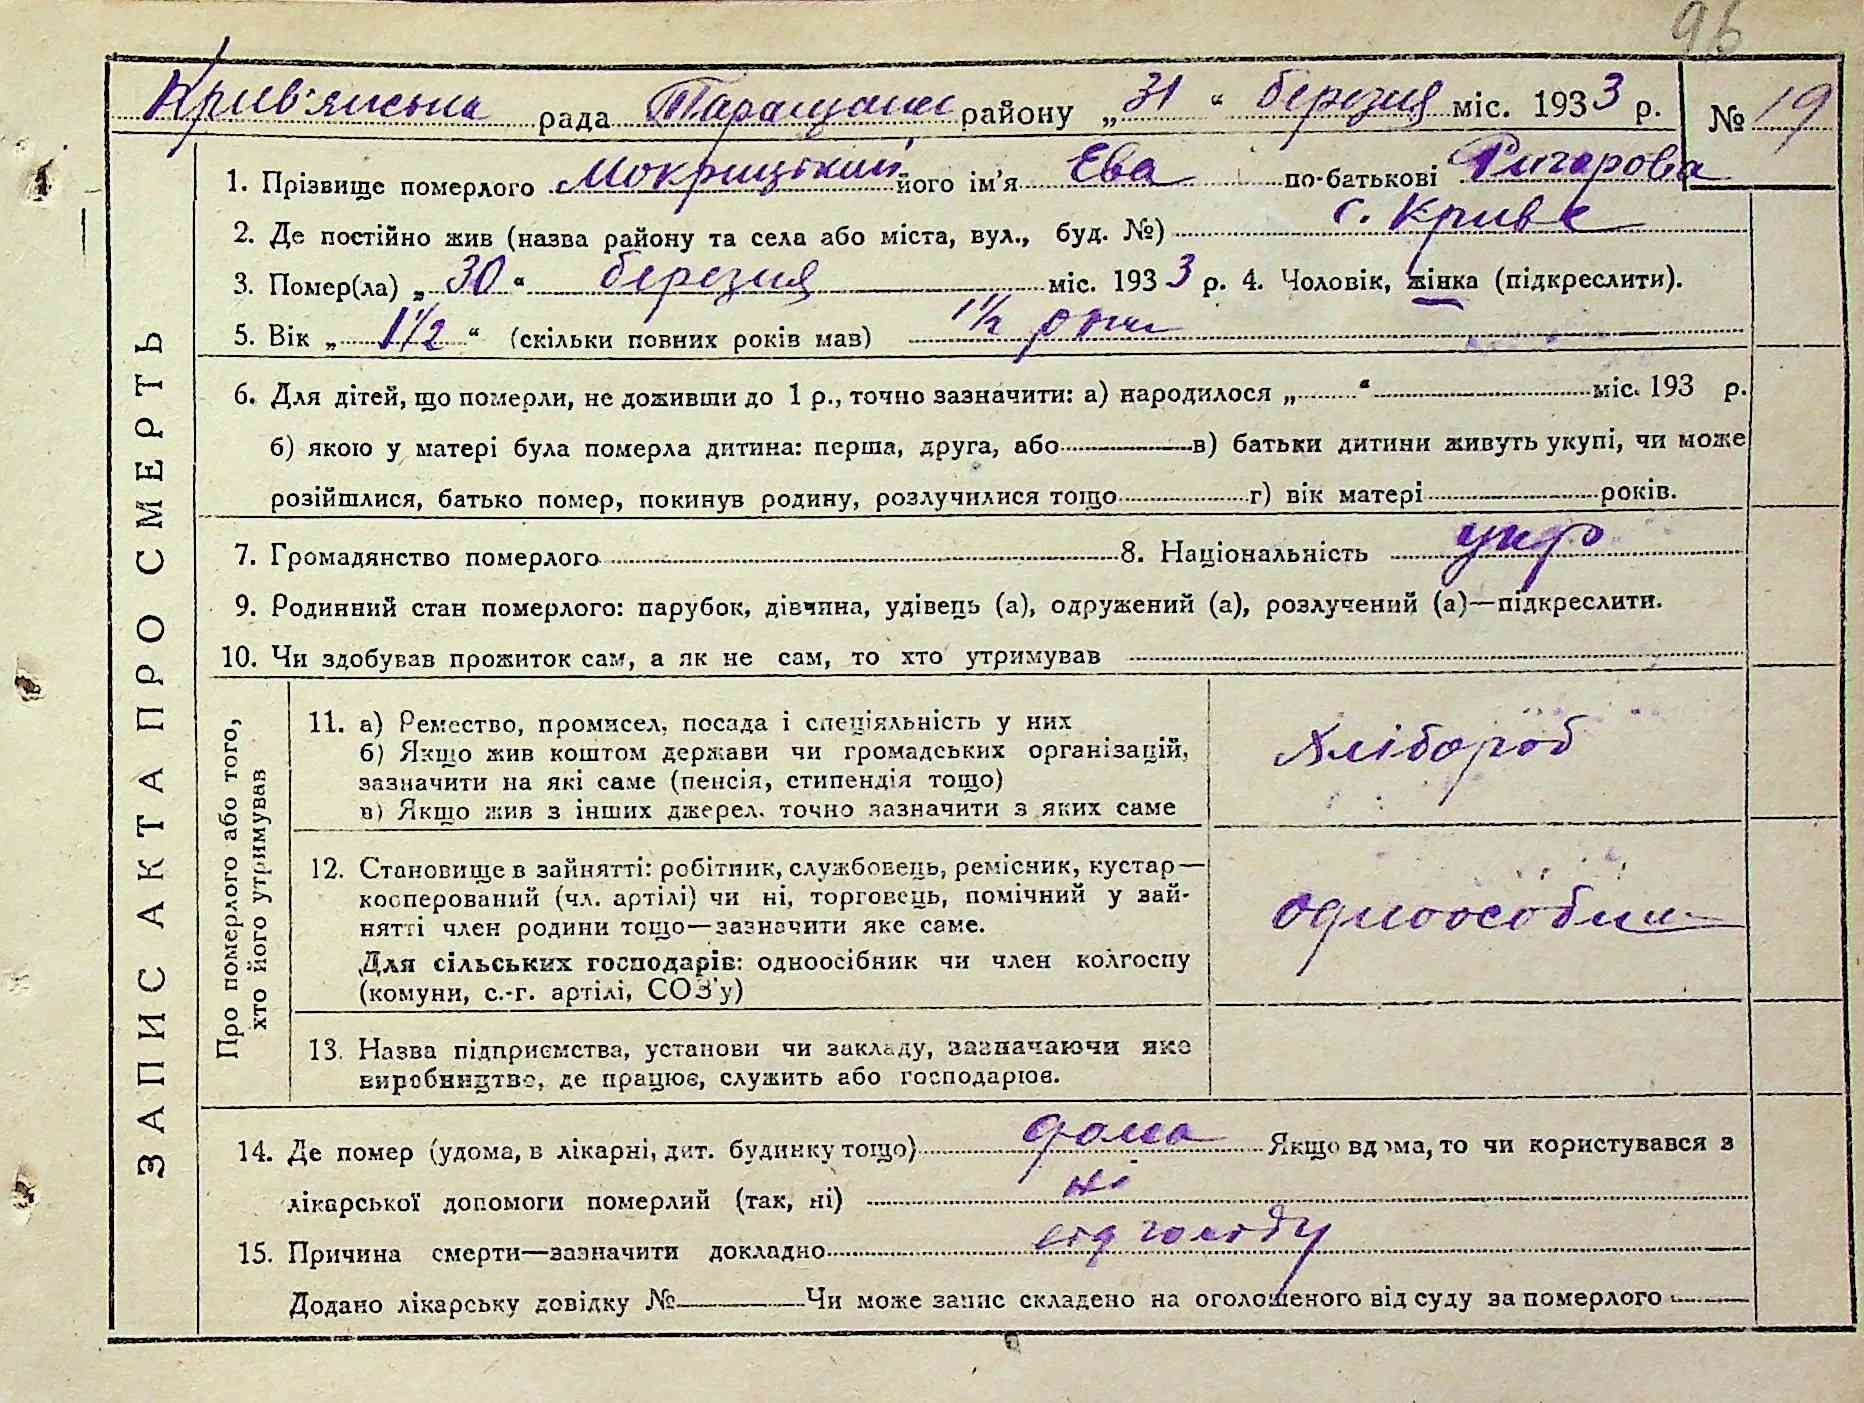 96
Крив'янська рада Таращанськ району „31“ березня міс. 1933 р. № 19
1. Прізвище померлого Мокрицький його ім'я Ева по-батькові Ригорова
2. Де постійно жив (назва району та села або міста, вул., буд. №) с. Криве
3. Помер(ла) „30“ березня міс. 1933 р. 4. Чоловік, жінка (підкреслити).
5. Вік „1½“ (скільки повних років мав) 1½ роки
6. Для дітей, що померли, не доживши до 1 р., точно зазначити: а) народилося „ “ міс. 193 р.
б) якою у матері була померла дитина: перша, друга, або в) батьки дитини живуть укупі, чи може
розійшлися, батько помер, покинув родину, розлучилися тощо г) вік матері років.
7. Громадянство померлого 8. Національність укр
9. Родинний стан померлого: парубок, дівчина, удівець (а), одружений (а), розлучений (а)—підкреслити.
10. Чи здобував прожиток сам, а як не сам, то хто утримував
ЗАПИС АКТА ПРО СМЕРТЬ
Про померлого або того,
хто його утримував
11. а) Ремество, промисел, посада і спеціяльність у них
б) Якщо жив коштом держави чи громадських організацій,
зазначити на які саме (пенсія, стипендія тощо)
в) Якщо жив з інших джерел. точно зазначити з яких саме
Хлібороб
12. Становище в зайнятті: робітник, службовець, ремісник, кустар—
косперований (чл. артілі) чи ні, торговець, помічний у зай-
нятті член родини тощо—зазначити яке саме.
Для сільських господарів: одноосібник чи член колгоспу
(комуни, с.-г. артілі, СОЗ'у)
одноособник
13. Назва підприємства, установи чи закладу, зазначаючи яке
виробництво, де працює, служить або господарює.
14. Де помер (удома, в лікарні, дит. будинку тощо) дома Якщо вдома, то чи користувався з
лікарської допомоги померлий (так, ні) ні
15. Причина смерти—зазначити докладно від голоду
Додано лікарську довідку № Чи може запис складено на оголошеного від суду за померлого